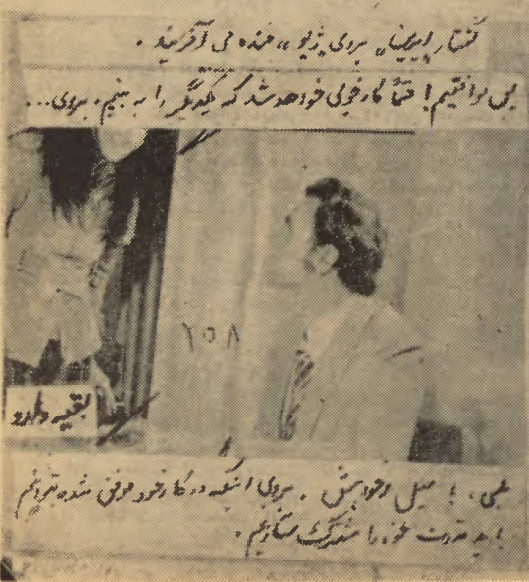 گفتار ایرینا، بروی خنده می آفریند .
موافقیم! حتماً کار خوبی خواهد شد که یکدیگر را به بینیم، بروی...
۲۵۸
بقیه دارد
بلی، با میل . بروی اینکه در کار خود موفق شده بتوانیم
باید قدرت خود را مشترک سازیم .